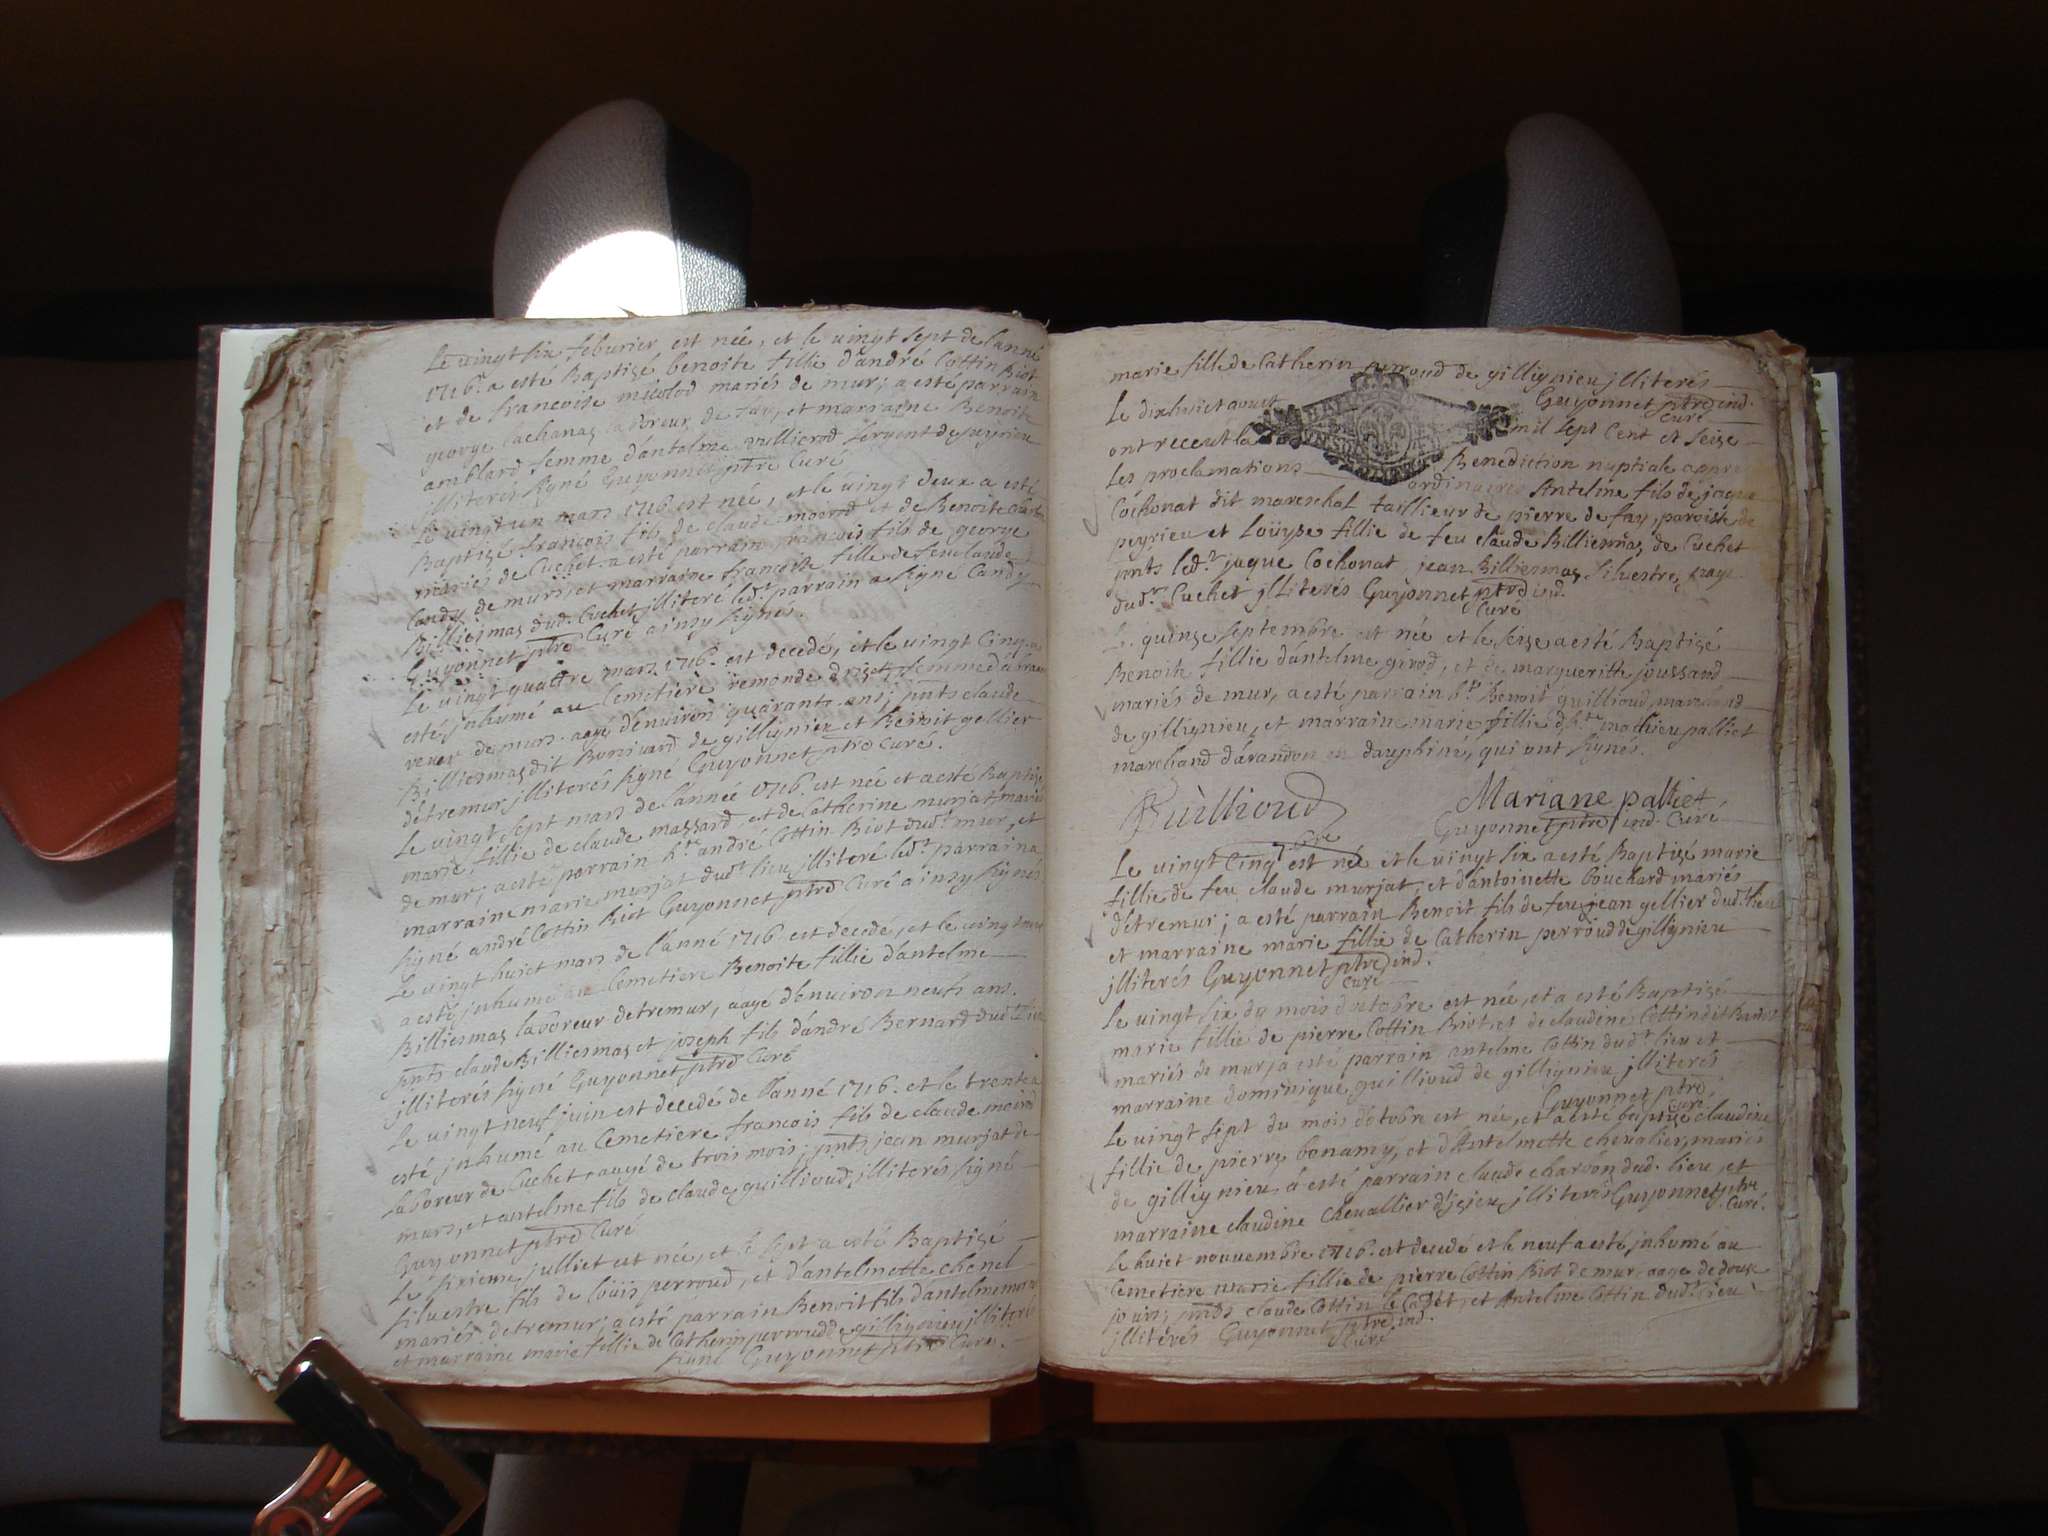 Le vingt six feburier est née, et le vingt sept de l'anné
1716. a esté Baptizé benoite fillie d'andré Cottin Biot
et de francoise micolod mariés de mur; a esté parrain
george lachanas laboreur de fay, et marraine Benoite
amblard femme d'antelme vullierod sergent de peyrieu
illiterés signé Guyonnet ptre Curé
Le vingt un mars 1716 est née, et le vingt deux a esté
Baptizé francois fils de claude moerod et de Benoite
mariés de Cuchet a esté parrain francois fils de george
Candy de murs, et marraine francoise fille de feu claude
Billiemas dud. Cuchet jlliteré led.t parrain a signé Candy
Guyonnet ptre Curé ainsy signés.
Le vingt quattre mars 1716. est decedé, et le vingt Cinq a
esté jnhumé au Cemetiere remonde femme d'abram
rever de murs. aagé d'enuiron quarante ans; pnts claude
Billiemas dit Bonivard de gillignieu et Benoit gellier
d'etremur jlliterés signé Guyonnet ptre Curé.
Le vingt sept mars de l'anneé 1716. est née et a esté Baptize
marie fillie de claude massard, et de Catherine murjat mariés
de mur; a esté parrain h.te andré Cottin Biot dud.t mur, et
marraine marie murjat dud.t lieu jlliteré led.t parrain a
signé andré Cottin Biot Guyonnet ptre Curé ainsy signés
Le vingt huict mars de l'anné 1716 est decedé, et le vingt neuf
a esté jnhumé au Cemetiere Benoite fillie d'antelme
Billiemas laboreur d'etremur, aagé d'enuiron neufs ans.
pnts claude Billiemas et joseph fils d'andré Bernard dud. lieu
jlliterés signé Guyonnet ptre Curé
Le vingt neuf juin est decedé de l'anné 1716. et le trente a
esté jnhumé au Cemetiere francois fils de claude moirod
laboreur de Cuchet, aagé de trois mois; pnts jean murjat de
murs, et antelme fils de claude guillioud, jlliterés signé
Guyonnet ptre Curé
Le sixieme julliet est née, et le sept a esté Baptizé
siluestre fils de loüis perroud, et d'antelmette chenel
mariés d'etremur; a esté parrain Benoit fils d'antelme
et marraine marie fillie de Catherin perroud de gillignieu jlliterés
signé Guyonnet ptre Curé.
marie fille de Catherin perroud de gillignieu jlliterés
Guyonnet ptre ind.
Curé
Le dixhuict aoust mil sept Cent et seise
ont receut la Benediction nuptiale appres
Les proclamations ordinaires Antelme fils de jaque
Cochonat dit mareschal taillieur de pierre de fay, paroisse de
peyrieu et Loüyse fillie de feu claude Billiemas de Cuchet
pnts led.t jaque Cochonat, jean Billiemas Siluestre
dud.t Cuchet jlliterés Guyonnet ptre ind.
Curé
Le quinse septembre est née et le seise a esté Baptizé
Benoite fillie d'antelme girod, et de margueritte joussand
mariés de mur, a esté parrain h.te Benoit guillioud marchand
de gillignieu, et marraine marie fillie d'h.te mathieu palliet
marchand d'arandon en dauphiné, qui ont signés.
Guillioud
Mariane palliet
Guyonnet ptre ind. Curé
Le vingt Cinq est né et le vingt six a esté Baptizé marie
fillie de feu claude murjat, et d'antoinette bouchard mariés
d'etremur; a esté parrain Benoit fils de feu jean gellier dud.t lieu
et marraine marie fillie de Catherin perroud de gillignieu
jlliterés Guyonnet ptre ind.
Curé
Le vingt six du mois d'octobre est née, et a esté Baptizé
marie fillie de pierre Cottin Biot, et de claudine Cottin dit
mariés de mur, a esté parrain antelme Cottin dud.t lieu et
marraine dominique guillioud de gillignieu jlliterés
Guyonnet ptre
Curé
Le vingt sept du mois d'octobre est née, et a esté baptizé claudine
fillie de pierre bonamy, et d'Antelmette chevalier, mariés
de gillignieu, a esté parrain claude charbon dud. lieu, et
marraine claudine Chevallier d'jzieu jlliterés Guyonnet ptre
Curé.
Le huict nouuembre 1716. est decedé et le neuf a esté jnhumé au
Cemetiere marie fillie de pierre Cottin Biot de mur, aagé de douze
jours; pnts claude Cottin le Cadet, et Antelme Cottin dud.t lieu
jlliterés Guyonnet ptre ind.
Curé